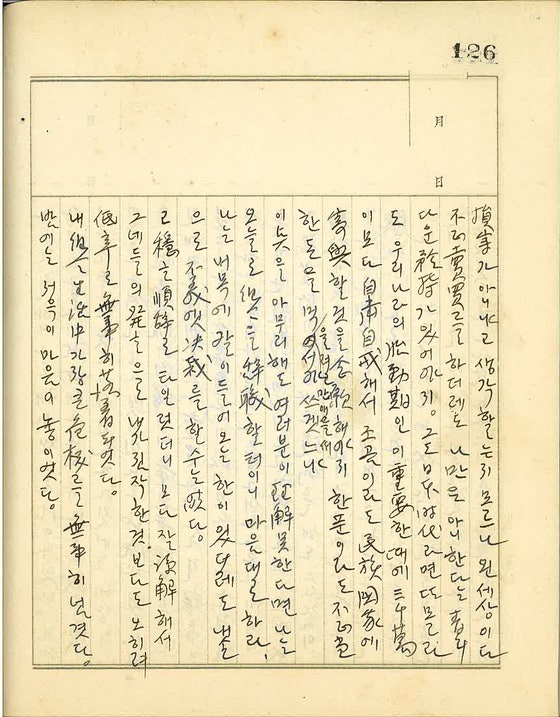 126
月
日
損害가 아니냐고 생각할는지 모르나 왼세상이 다
不正賣買를 하더래도 나만은 아니한다는
다운 矜持가 있어야지. 그도 日本時代라면 또 모르나
도 우리나라의 胎動期인 이 重要한 때에 三千萬
이 모다 自肅自戒해서 조곰이라도 民族國家에
寄與할 것을 해야지 한푼이라도 不正當
한 돈으로 먹 여서야 쓰겟느냐
이 뜻을 아무리해도 여러분이 理解 못한다면 나는
오늘로 을 辭職할 터이니 마음대로 하라.
나는 내 목에 칼이 들어오는 한이 있더래도 내 손
으로 不義엣 決裁를 할 수는 없다.
고 順 로 타일럿더니 모다 잘 諒解해서
그네들의 으로 내가 짐작한 것보다도 도히려
低率로 無事히 落着되엿다.
내 生活中 가장 큰 危機를 無事히 넘겻다.
밤에는 저윽이 마음이 놓이엇다.